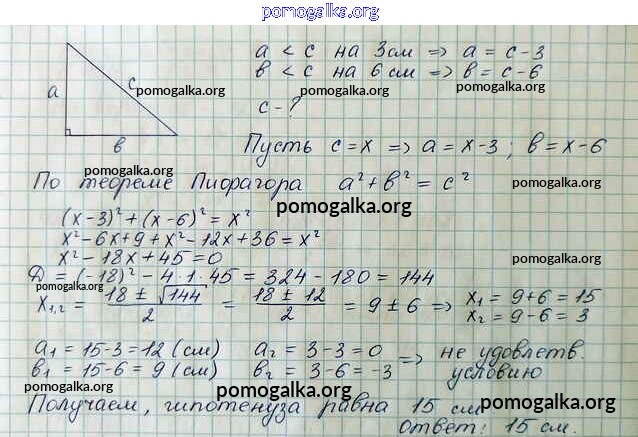 pomogalka.org
a < c на 3см => a = c-3
в < c на 6см => в = c-6
pomogalka.org
pomogalka.org
a
c
в
c-?
Пусть c=x => a=x-3; в=x-6
pomogalka.org
По теореме Пифагора a²+в²=c²
pomogalka.org
pomogalka.org
(x-3)²+(x-6)²=x²
x²-6x+9+x²-12x+36=x²
x²-18x+45=0
pomogalka.org
Д=(-18)²-4·1·45=324-180=144
pomogalka.org
x₁,₂ = (18±√144)/2 = (18±12)/2 = 9±6 => x₁=9+6=15
x₂=9-6=3
a₁=15-3=12(см) a₂=3-3=0 => не удовлетв.
в₁=15-6=9(см) в₂=3-6=-3 условию
pomogalka.org
Получаем, гипотенуза равна 15 см
pomogalka.org
pomogalka.org
ответ: 15 см.